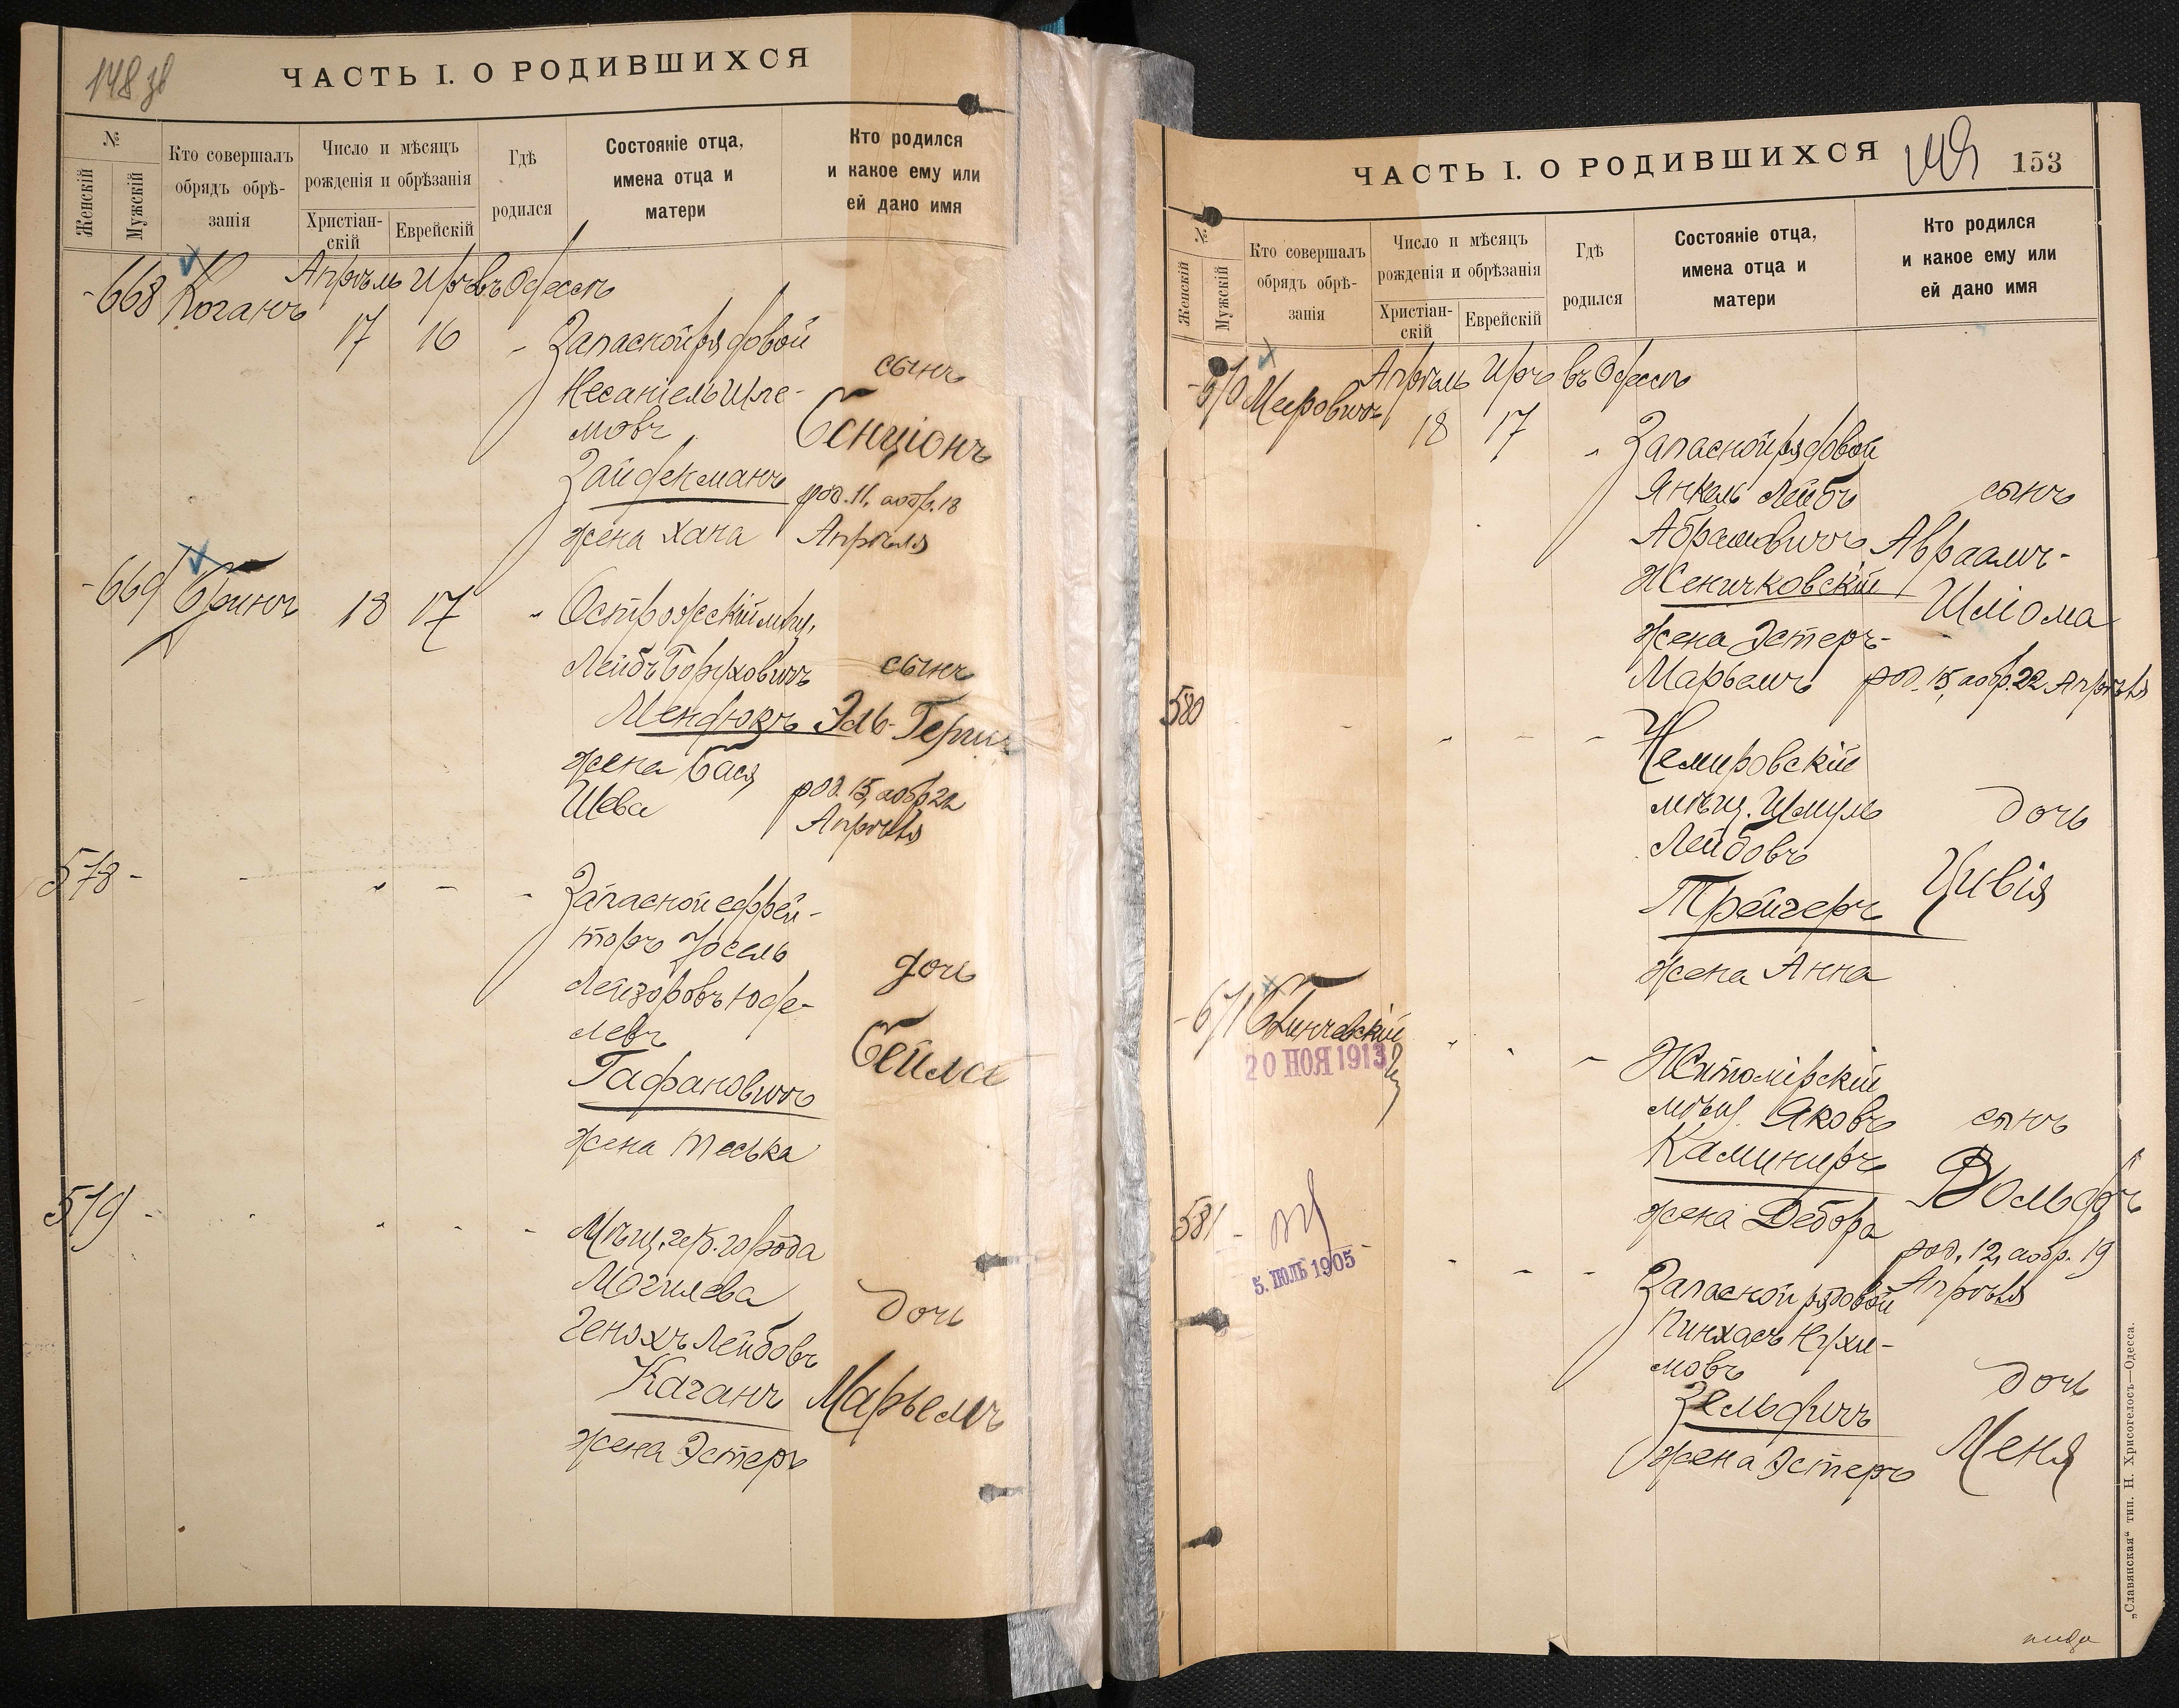 148 зв
ЧАСТЬ I. О РОДИВШИХСЯ
№
Женскій
Мужскій
Кто совершалъ
обрядъ обрѣ-
занія
Число и мѣсяцъ
рожденія и обрѣзанія
Христіан-
скій
Еврейскій
Гдѣ
родился
Состояніе отца,
имена отца и
матери
Кто родился
и какое ему или
ей дано имя
668 Коганъ Апрѣль Иръ въ Одессѣ
17 16 Запасной рядовой
Несаніель Шле-
мовъ
Зайдекманъ
жена Хана
сынъ
Бенціонъ
род. 11, а обр. 18
Апрѣля
669 18 17 Острожскій мѣщ.
Лейбъ Борухович
Мендюкъ
жена Бася
Шева
сынъ
Эль-Герш
род. 15, а обр. 22
Апрѣля
578 Запасной ефрей-
торъ Іосель
Лейзоровъ Юде-
левъ
Гафановичъ
жена Теська
дочь
Бейла
579 Мѣщ. губ. города
Могилева
Генохъ Лейбовъ
Каганъ
жена Эстеръ
дочь
Марьемъ
ЧАСТЬ I. О РОДИВШИХСЯ
149
153
№
Женскій
Мужскій
Кто совершалъ
обрядъ обрѣ-
занія
Число и мѣсяцъ
рожденія и обрѣзанія
Христіан-
скій
Еврейскій
Гдѣ
родился
Состояніе отца,
имена отца и
матери
Кто родился
и какое ему или
ей дано имя
670 Меировичъ Апрѣль Иръ въ Одессѣ
18 17 Запасной рядовой
Янкель Лейбъ
Абрамовичъ
Женичковскій
жена Эстеръ-
Марьемъ
сынъ
Авраамъ-
Шліома
род. 15, а обр. 22 Апрѣля
580 Немировскій
мѣщ. Шмуль
Лейбовъ
Трейгеръ
жена Анна
дочь
Цивія
671 Бѣлинчевскій
20 НОЯ 1913
Житомірскій
мѣщ. Яковъ
Каминиръ
жена Дебора
сынъ
Вольфъ
род. 12, а обр. 19
Апрѣля
581
5. ІЮЛЬ 1905
Запасной рядовой
Пинхасъ Нухи-
мовъ
Зельфичъ
жена Эстеръ
дочь
Меня
„Славянская“ тип. Н. Хрисогелосъ—Одесса.